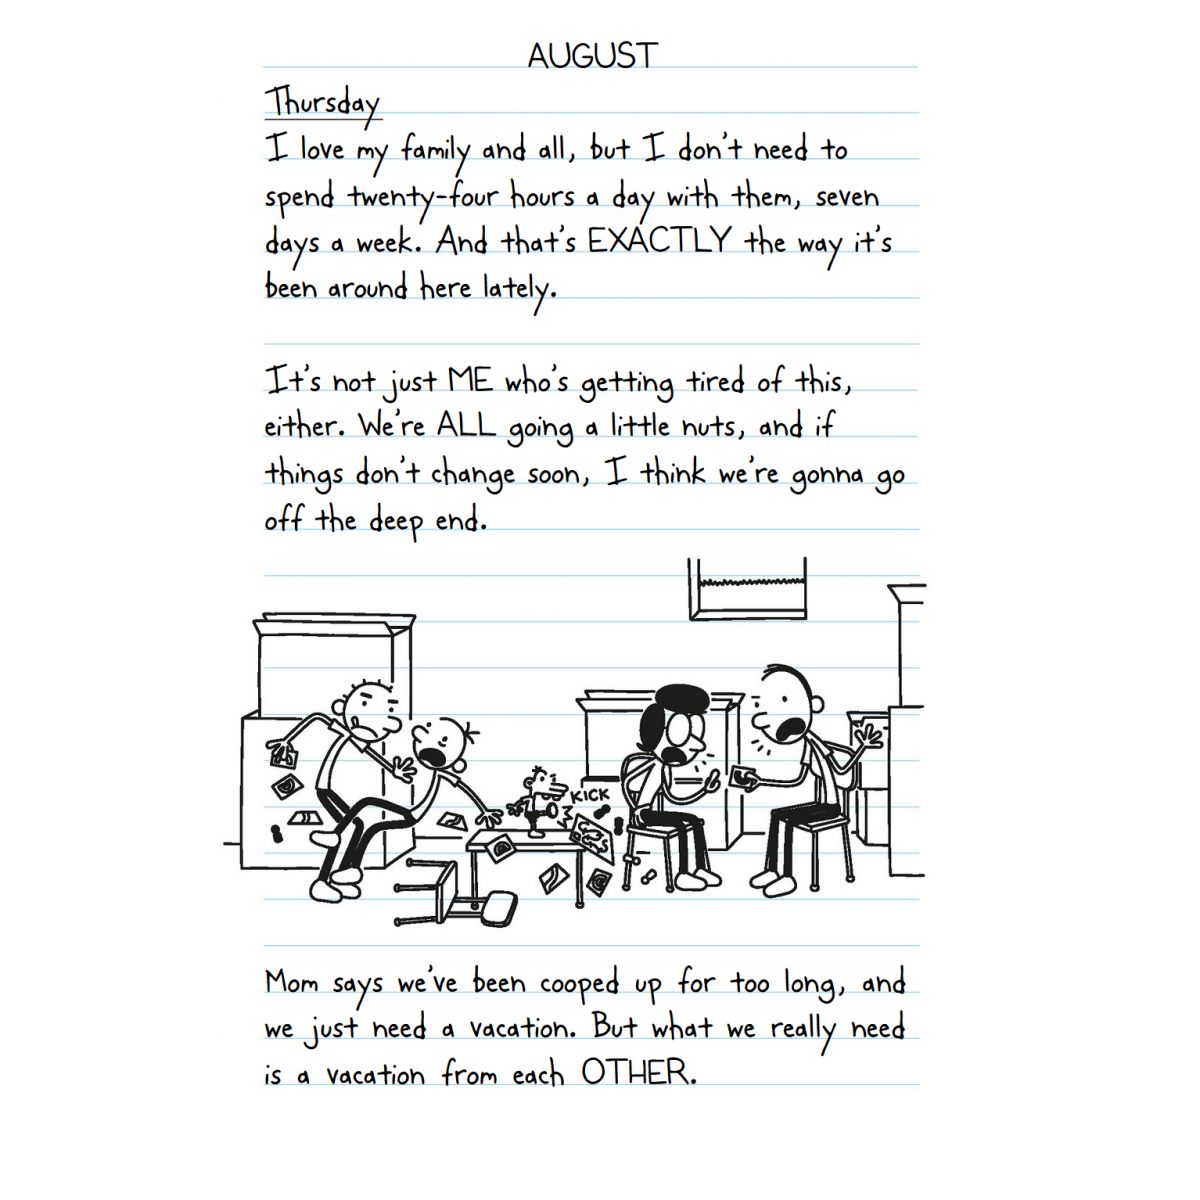 AUGUST
Thursday
I love my family and all, but I don't need to
spend twenty-four hours a day with them, seven
days a week. And that's EXACTLY the way it's
been around here lately.
It's not just ME who's getting tired of this,
either. We're ALL going a little nuts, and if
things don't change soon, I think we're gonna go
off the deep end.
KICK
Mom says we've been cooped up for too long, and
we just need a vacation. But what we really need
is a vacation from each OTHER.